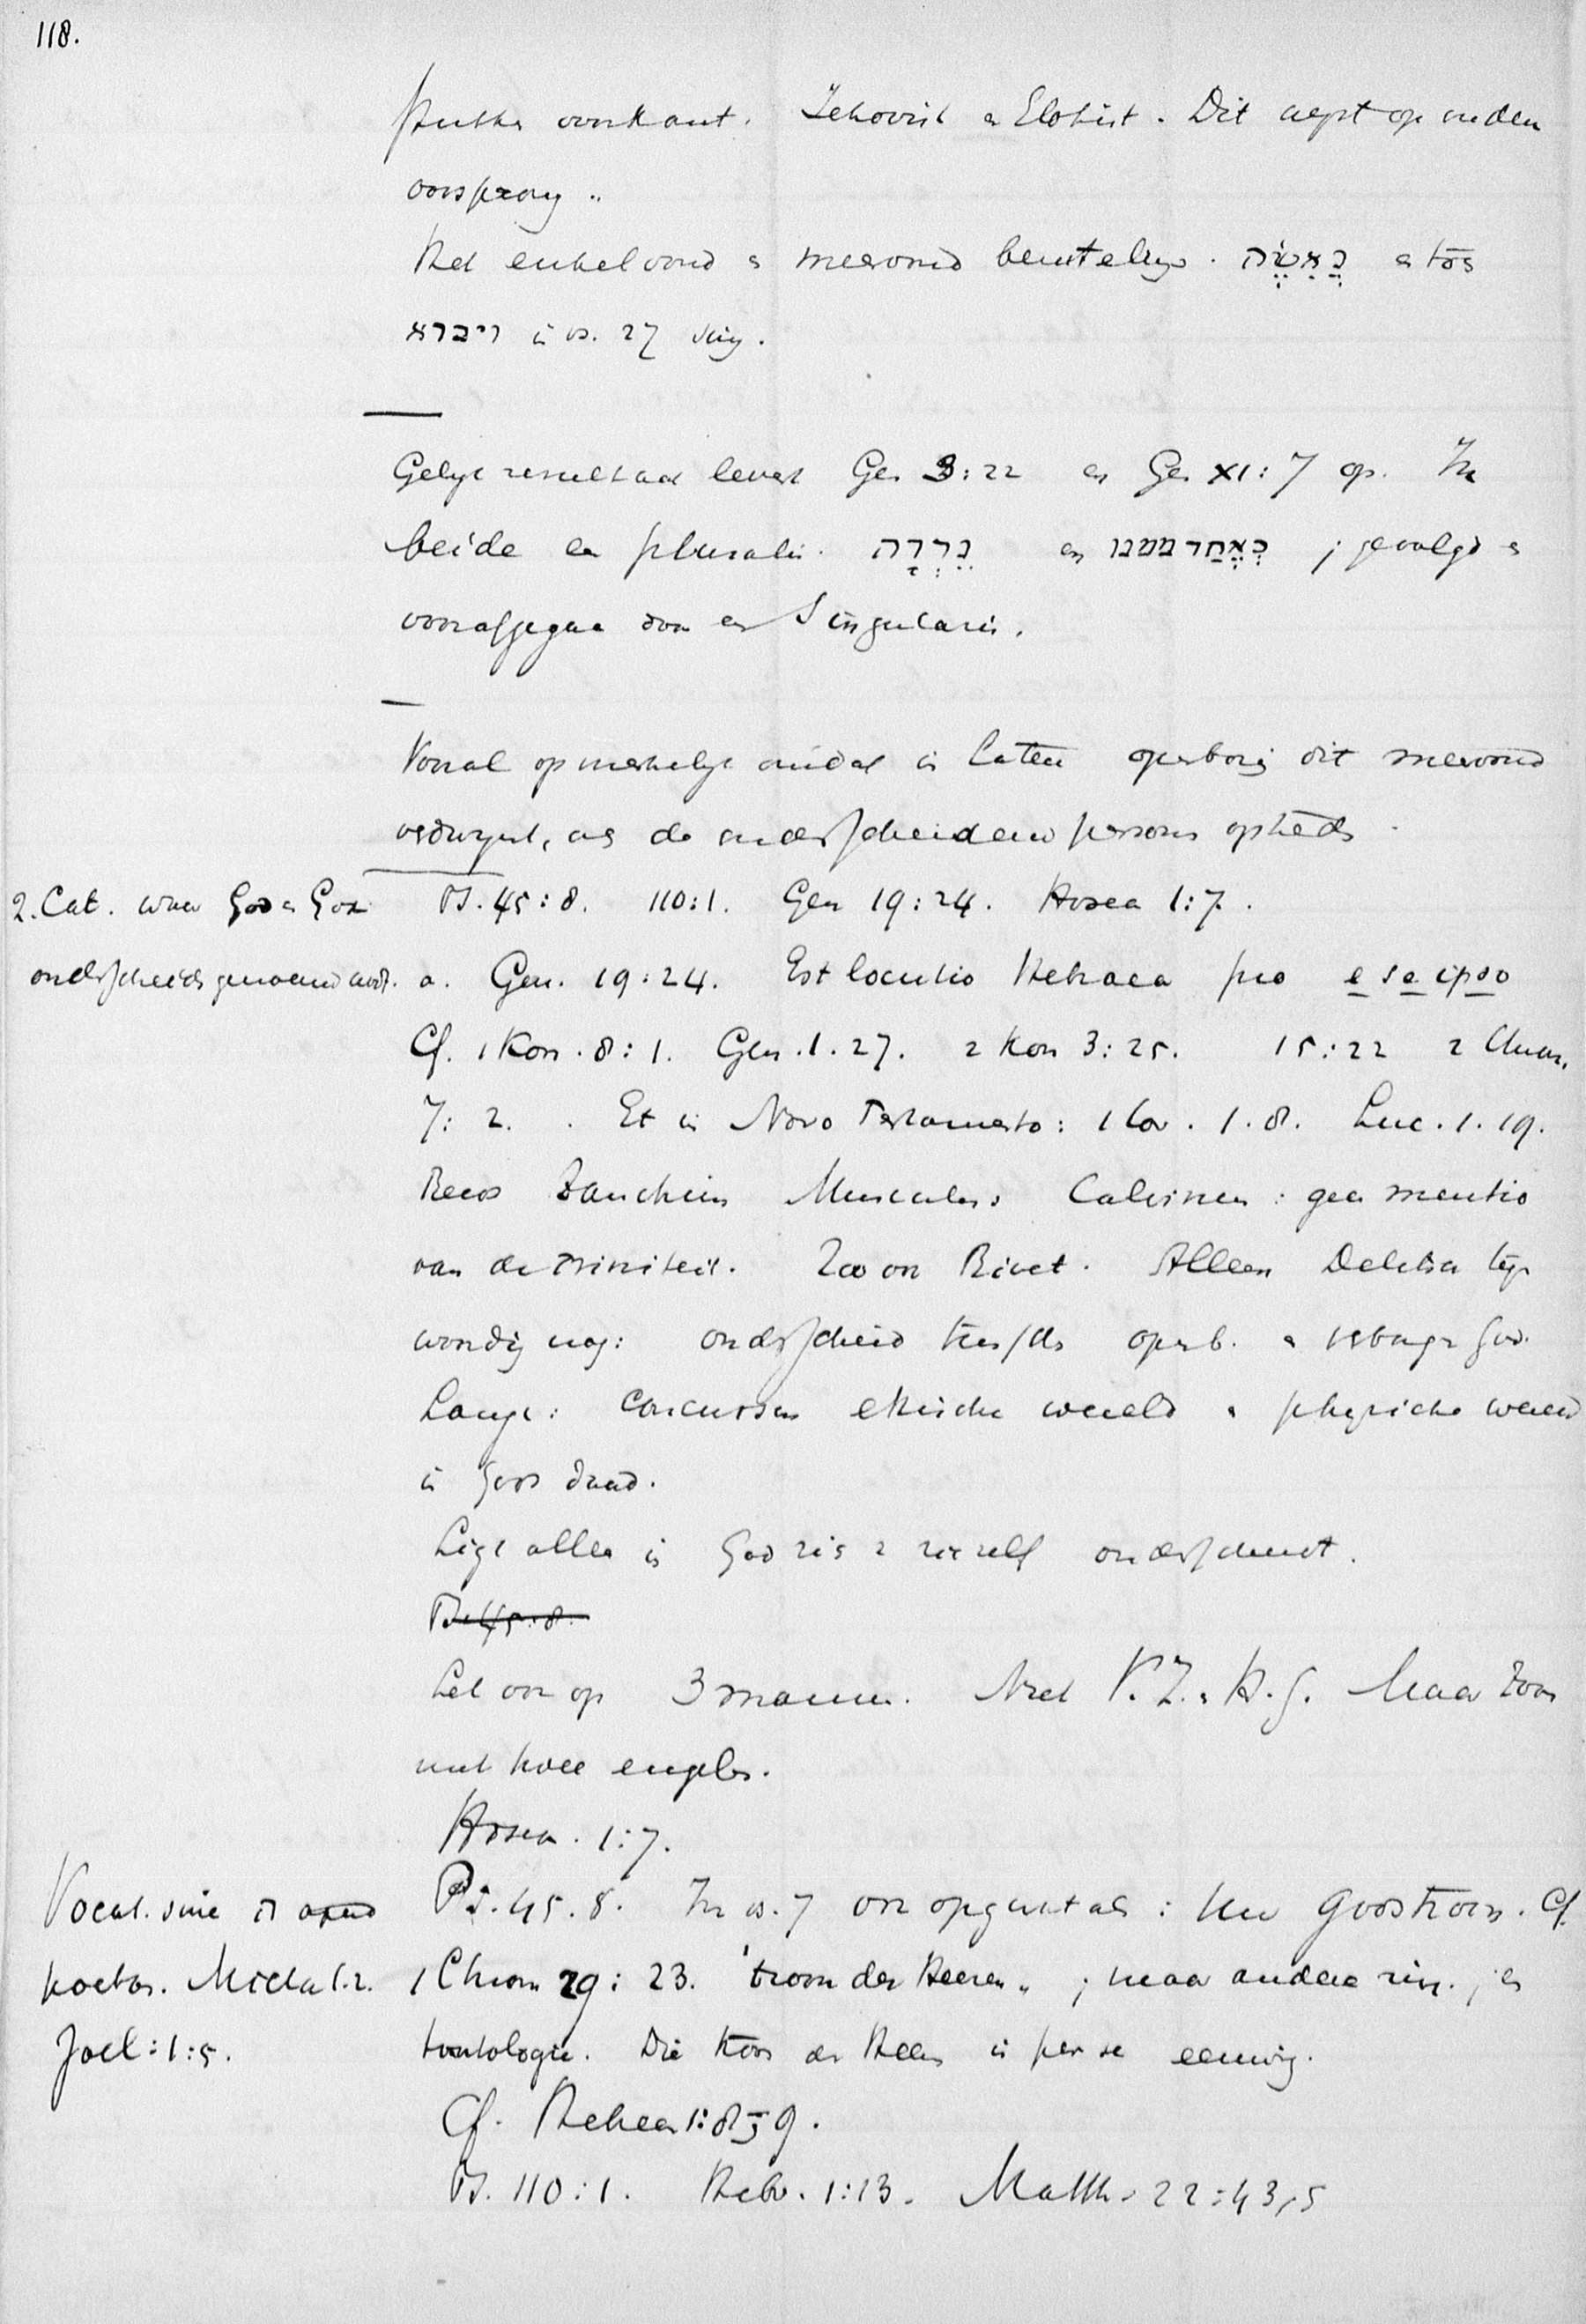 118.
stukken voorkomt. Jehovist en Elohist. Dit wijst op ouden
oorsprong.
Het enkelvoud en meervoud
ויברא in vs. 27
Gelijk resultaat levert Gen 3:22 en Gen XI:7 op. In
beide een pluralis. נֵרְדָה en כְּאַחַד ממנו ; gevolgd en
voorafgegaan door een Singularis.
Vooral opmerkelijk omdat in latere openbaring dit meervoud
verdwijnt, als de onderscheidene persoon optreedt.
2. Cat. waar God en God
onderscheiden genoemd wordt.
Ps. 45:8. 110:1. Gen 19:24. Hosea 1:7.
a. Gen. 19:24. Est locutio Hebraea pro e se ipso
Cf. 1 Kon. 8:1. Gen. 1.27. 2 Kon 3:25. 15:22 2 Chron.
7:2. Et in Novo Testamento: 1 Cor. 1.8. Luc. 1.19.
Reeds Zanchius Musculus Calvinus: geen mentio
van de triniteit. Zoo ook Rivet. Alleen Delitzsch
nog: onderscheid tusschen openb. en verborgen God.
Lange: ethische wereld en physische wereld
in Gods daad.
Ligt alleen in God zich zelf onderscheidt.
Ps. 45:8.
Let ook op 3 mannen. Niet V. Z. en H. G. Maar Zoon
met twee engelen.
Hosea. 1:7.
Vocat. sine ה apud
poetas. Micha 1.2.
Joel: 1:5.
Ps. 45.8. In vs. 7 ook opgevat als: Uw Godstroon. Cf.
1 Chron 29:23. "troon des Heeren" ; maar andere zin. ; en
tautologie. Die troon des Heeren is per se eeuwig.
Cf. Hebr 1:8 9.
Ps. 110:1. Hebr. 1:13. Matth. 22:43,5